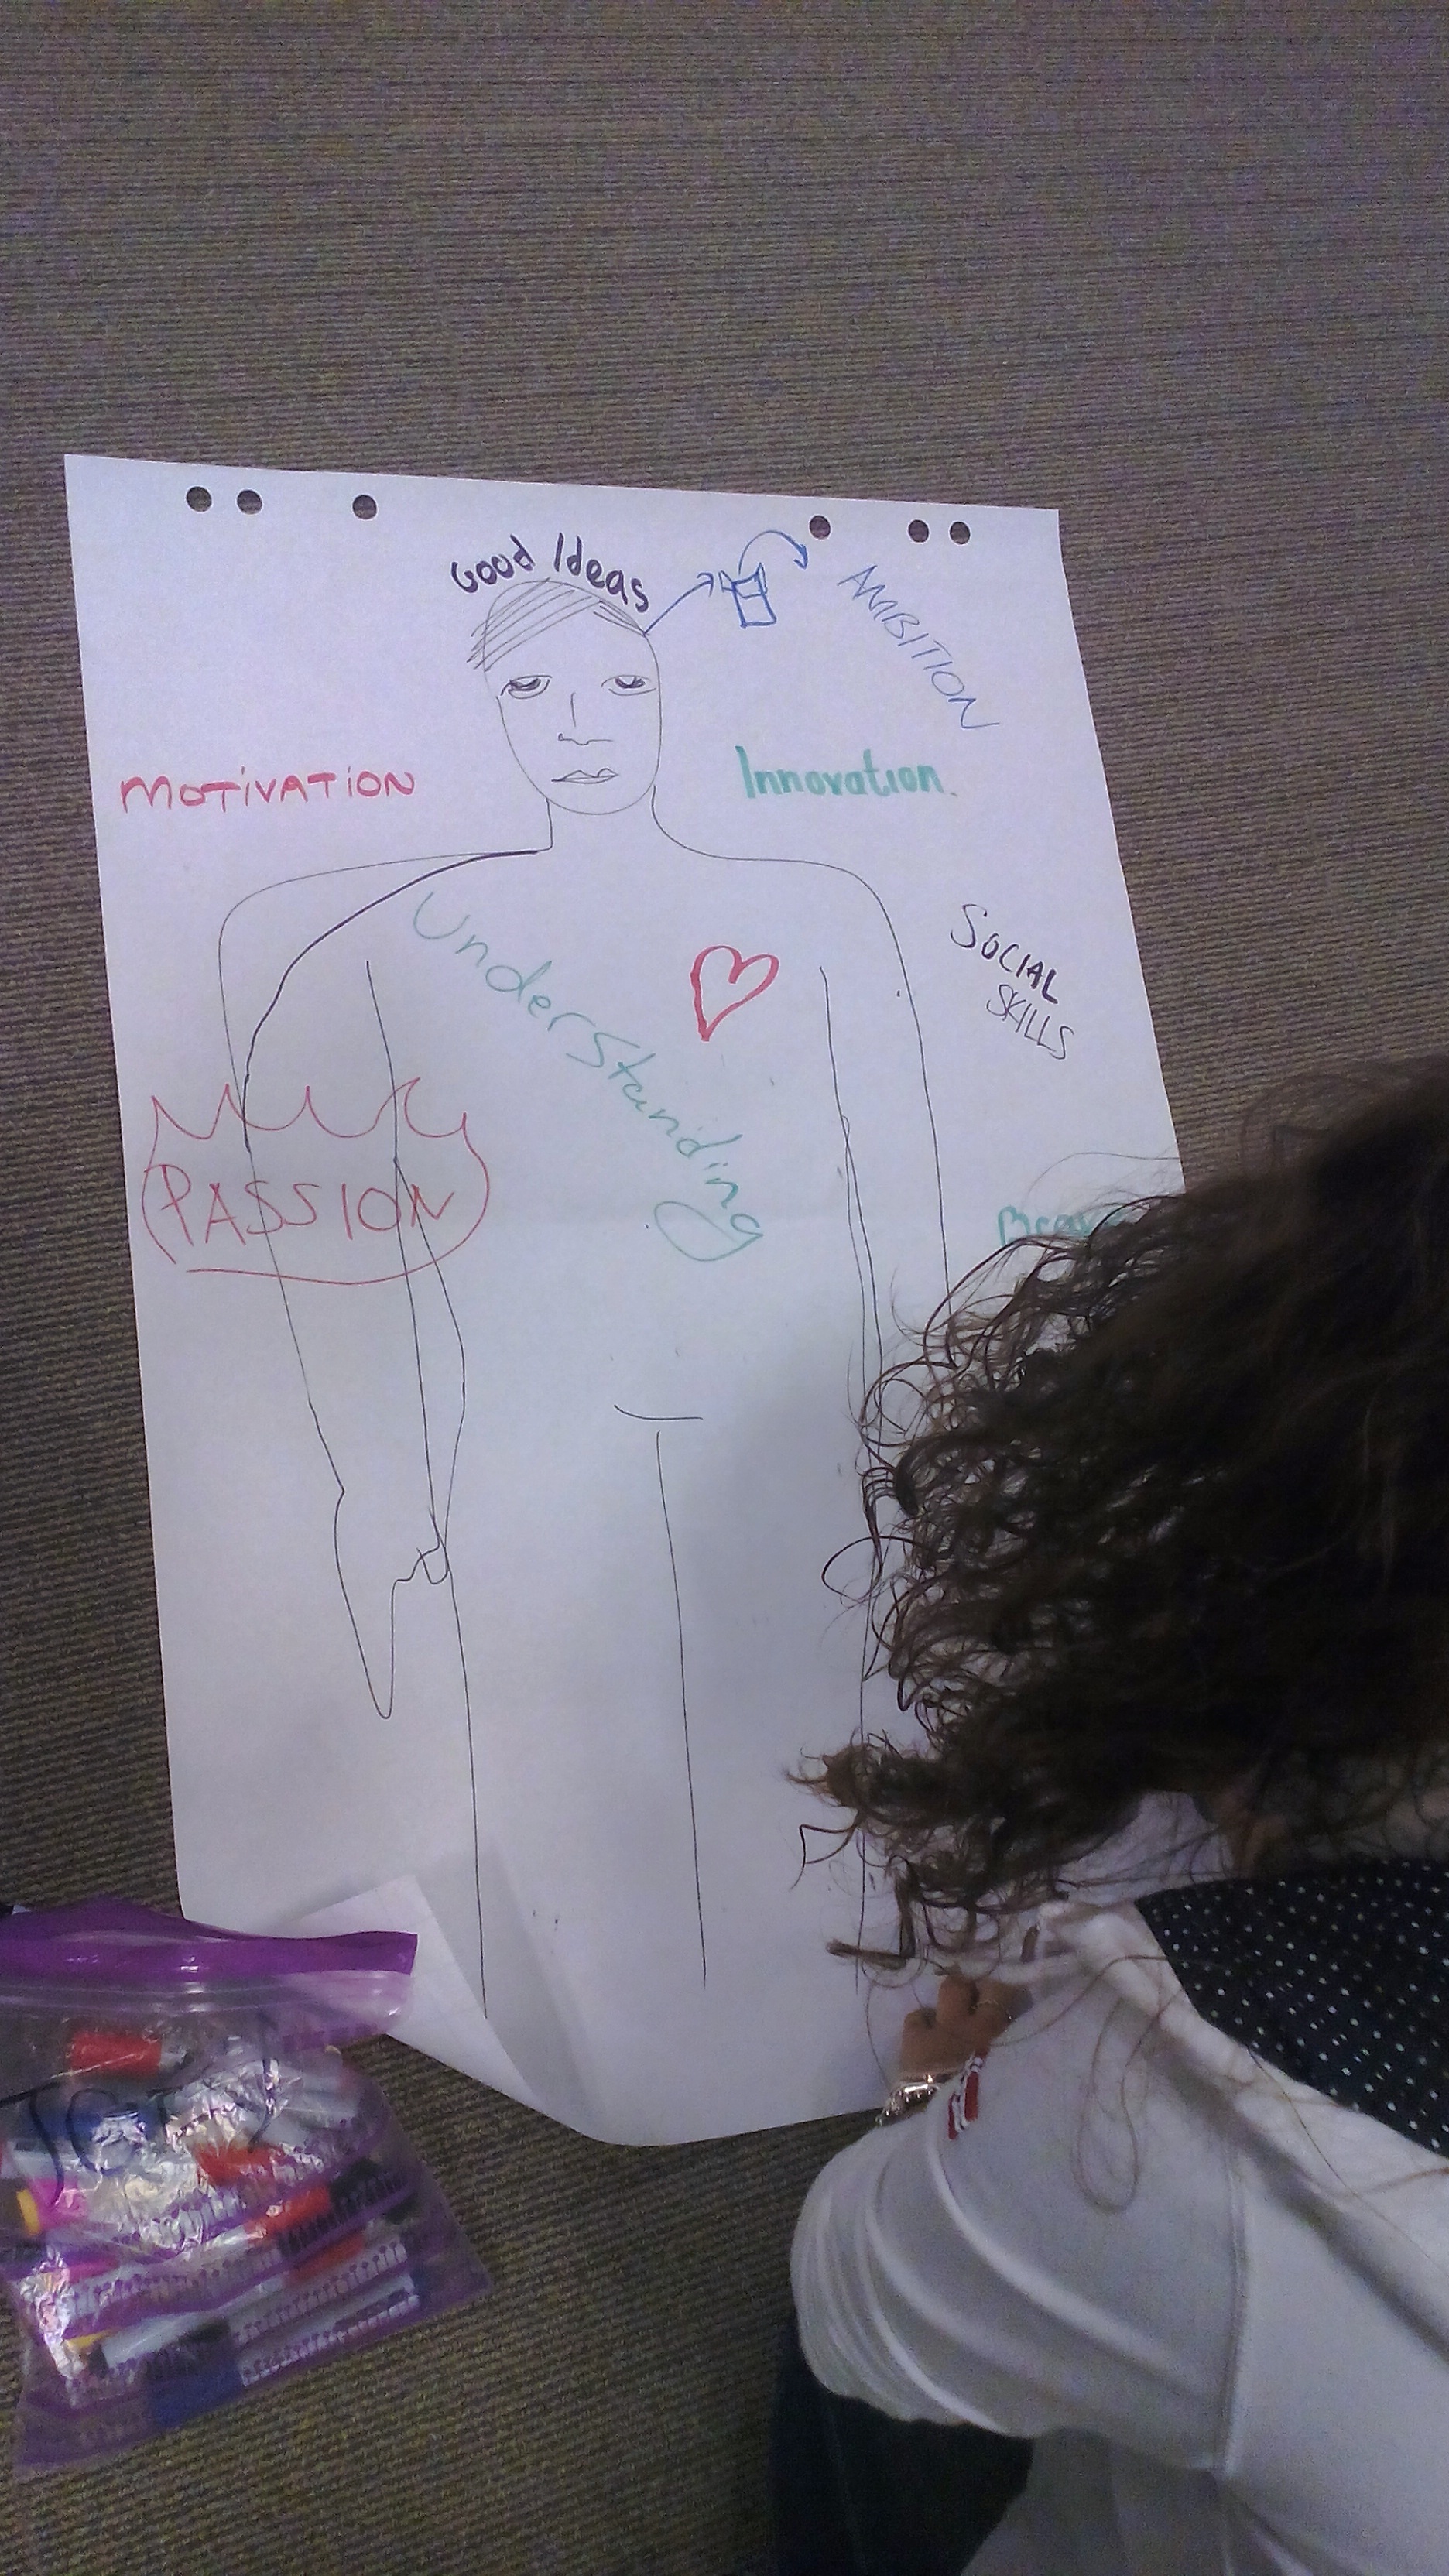 Good Ideas
AMBITION
MOTIVATION
Innovation.
Understanding
SOCIAL
SKILLS
PASSION